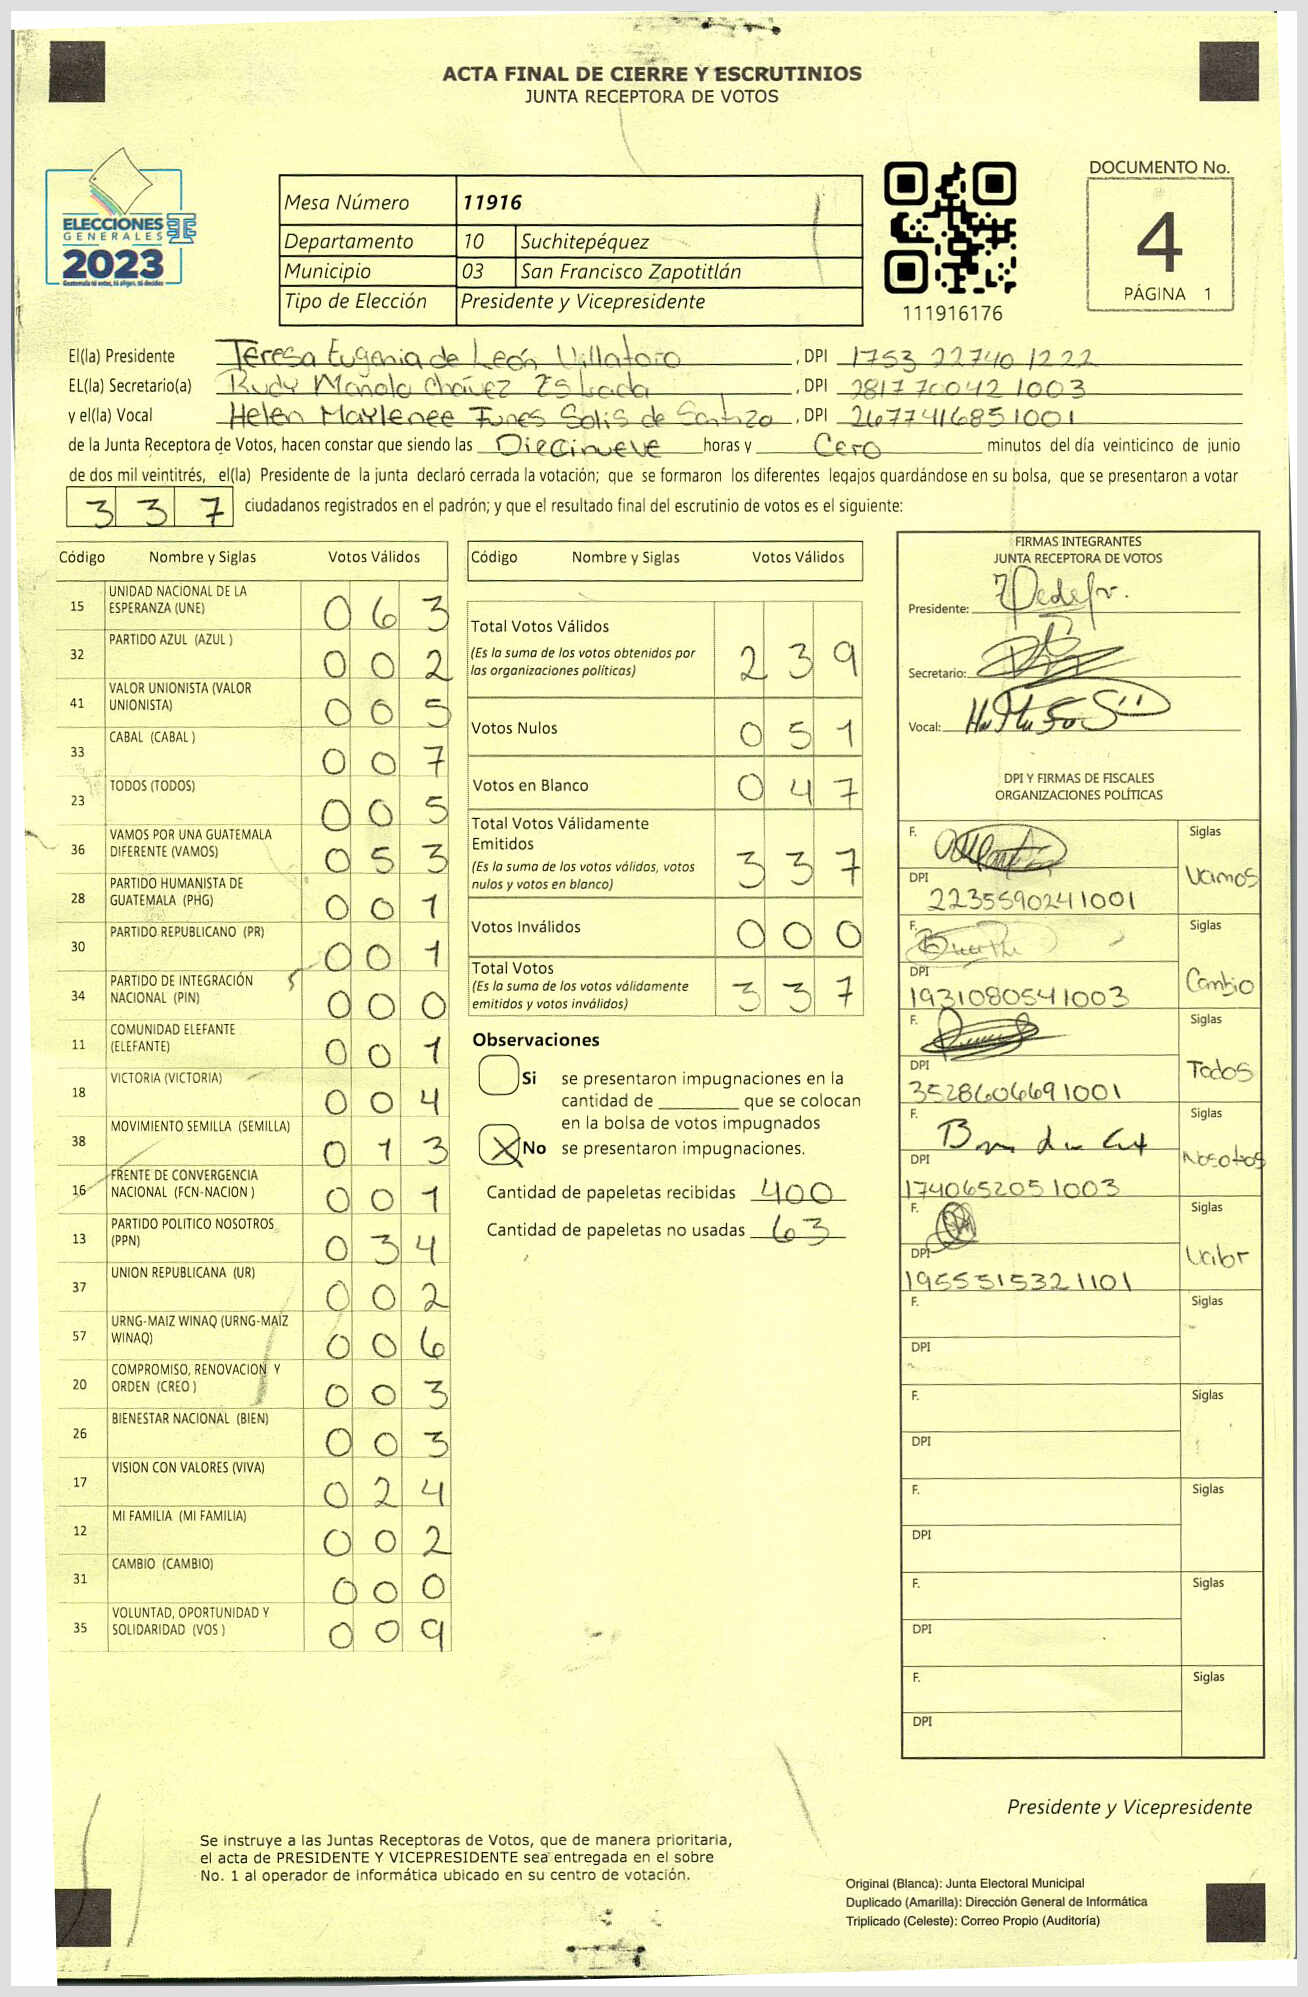 ACTA FINAL DE CIERRE Y ESCRUTINIOS
JUNTA RECEPTORA DE VOTOS
ELECCIONES
GENERALES
2023
Guatemala tú votas, tú eliges, tú decides
Mesa Número 11916
Departamento 10 Suchitepéquez
Municipio 03 San Francisco Zapotitlán
Tipo de Elección Presidente y Vicepresidente
111916176
DOCUMENTO No.
4
PÁGINA 1
El(la) Presidente Teresa Eugenia de León Villatoro , DPI 1753 22740 1222
EL(la) Secretario(a) Rudy Mañolo Chávez Estrada , DPI 2817 70042 1003
y el(la) Vocal Helen Marlenee Funes Solis de Santizo , DPI 2677416851001
de la Junta Receptora de Votos, hacen constar que siendo las Diecinueve horas y Cero minutos del día veinticinco de junio
de dos mil veintitrés, el(la) Presidente de la junta declaró cerrada la votación; que se formaron los diferentes legajos quardándose en su bolsa, que se presentaron a votar
337 ciudadanos registrados en el padrón; y que el resultado final del escrutinio de votos es el siguiente:
Código Nombre y Siglas Votos Válidos
15 UNIDAD NACIONAL DE LA ESPERANZA (UNE) 063
32 PARTIDO AZUL (AZUL ) 002
41 VALOR UNIONISTA (VALOR UNIONISTA) 005
33 CABAL (CABAL ) 007
23 TODOS (TODOS) 005
36 VAMOS POR UNA GUATEMALA DIFERENTE (VAMOS) 053
28 PARTIDO HUMANISTA DE GUATEMALA (PHG) 001
30 PARTIDO REPUBLICANO (PR) 001
34 PARTIDO DE INTEGRACIÓN NACIONAL (PIN) 000
11 COMUNIDAD ELEFANTE (ELEFANTE) 001
18 VICTORIA (VICTORIA) 004
38 MOVIMIENTO SEMILLA (SEMILLA) 013
16 FRENTE DE CONVERGENCIA NACIONAL (FCN-NACION ) 001
13 PARTIDO POLITICO NOSOTROS (PPN) 034
37 UNION REPUBLICANA (UR) 002
57 URNG-MAIZ WINAQ (URNG-MAIZ WINAQ) 006
20 COMPROMISO, RENOVACION Y ORDEN (CREO ) 003
26 BIENESTAR NACIONAL (BIEN) 003
17 VISION CON VALORES (VIVA) 024
12 MI FAMILIA (MI FAMILIA) 002
31 CAMBIO (CAMBIO) 000
35 VOLUNTAD, OPORTUNIDAD Y SOLIDARIDAD (VOS ) 009
Código Nombre y Siglas Votos Válidos
Total Votos Válidos 239
(Es la suma de los votos obtenidos por
las organizaciones políticas)
Votos Nulos 051
Votos en Blanco 047
Total Votos Válidamente
Emitidos 337
(Es la suma de los votos válidos, votos
nulos y votos en blanco)
Votos Inválidos 000
Total Votos 337
(Es la suma de los votos válidamente
emitidos y votos inválidos)
Observaciones
Si se presentaron impugnaciones en la
cantidad de ________ que se colocan
en la bolsa de votos impugnados
X No se presentaron impugnaciones.
Cantidad de papeletas recibidas 400
Cantidad de papeletas no usadas 63
FIRMAS INTEGRANTES
JUNTA RECEPTORA DE VOTOS
Presidente:
Secretario:
Vocal:
DPI Y FIRMAS DE FISCALES
ORGANIZACIONES POLÍTICAS
F. Siglas
Vamos
DPI
2235590241001
F. Siglas
Cambio
DPI
1931080541003
F. Siglas
Todos
DPI
3528606691001
F. Siglas
Nosotros
DPI
1740652051003
F. Siglas
Valor
DPI
1955515321101
F. Siglas
DPI
F. Siglas
DPI
F. Siglas
DPI
F. Siglas
DPI
F. Siglas
DPI
Presidente y Vicepresidente
Se instruye a las Juntas Receptoras de Votos, que de manera prioritaria,
el acta de PRESIDENTE Y VICEPRESIDENTE sea entregada en el sobre
No. 1 al operador de informática ubicado en su centro de votación.
Original (Blanca): Junta Electoral Municipal
Duplicado (Amarilla): Dirección General de Informática
Triplicado (Celeste): Correo Propio (Auditoría)